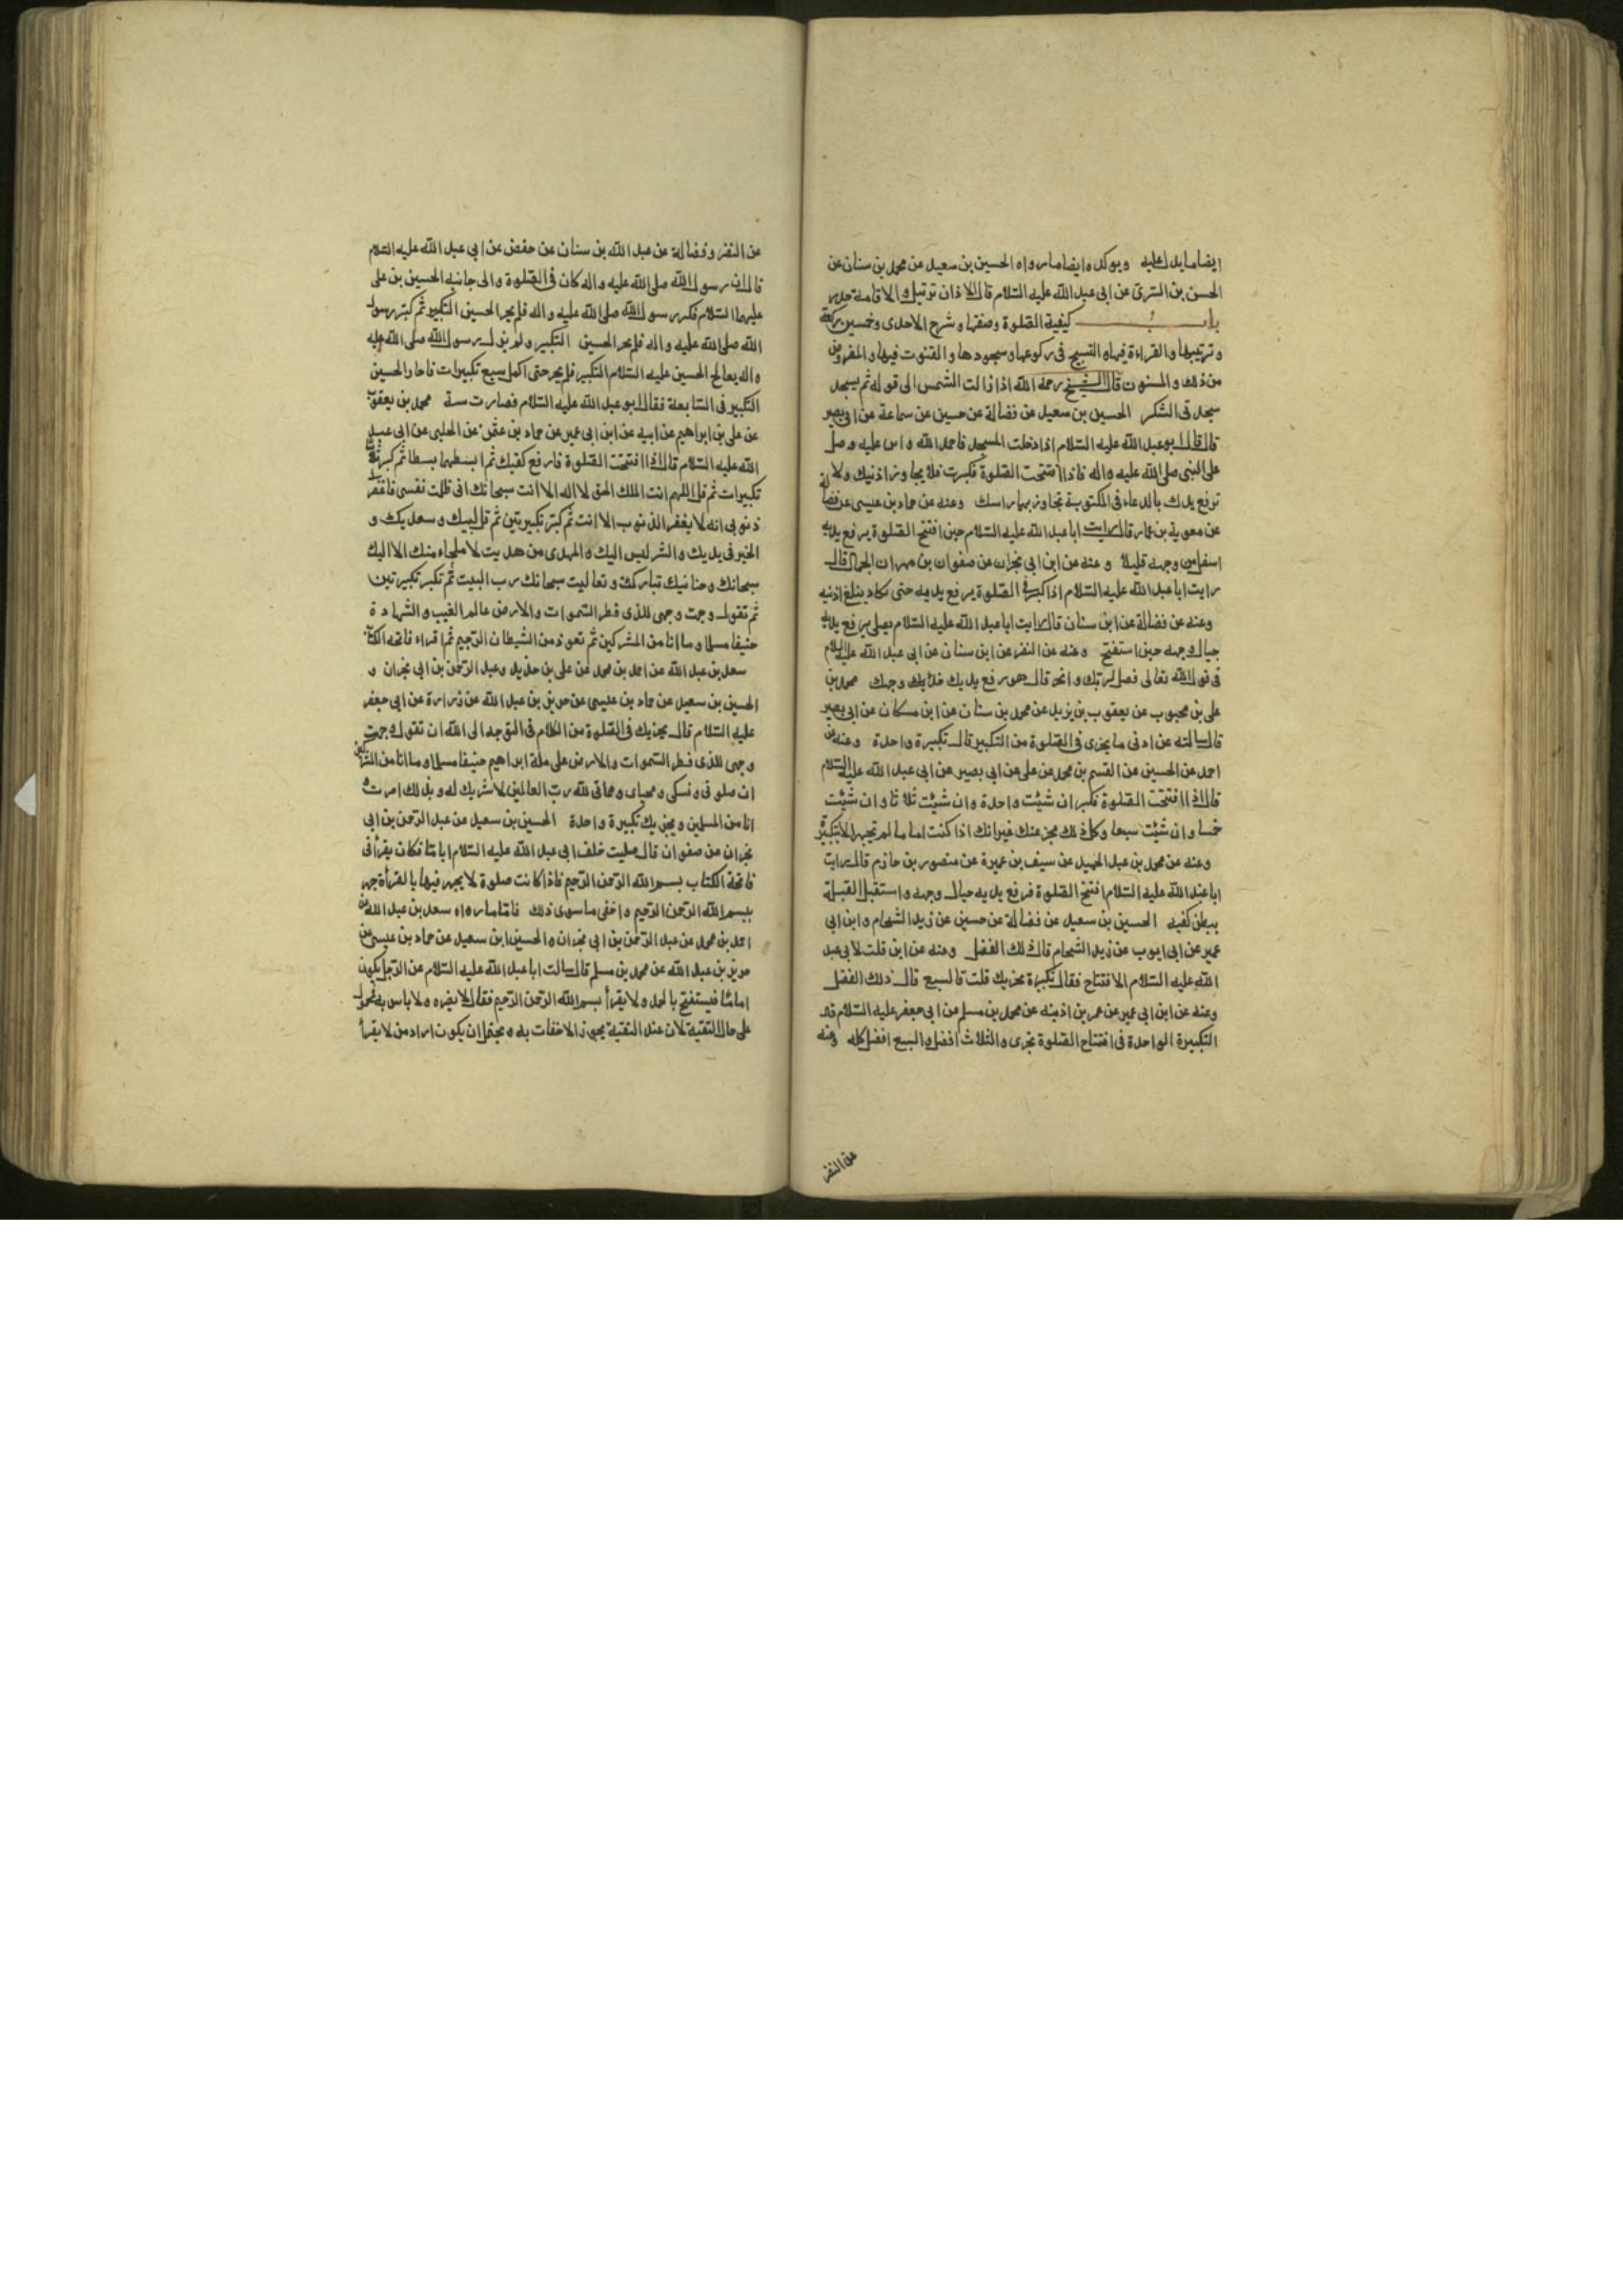 ايضا ما يدل عليه ويوكده ايضا ما رواه الحسين بن سعيد عن محمد بن سنان عن
الحسن بن السرى عن ابى عبد الله عليه السلام قال الاذان ترتيل والاقامة حدر
باب كيفية الصلوة وصفتها وشرح الاحدى وخمسين ركعة
وترتيبها والقراءة فيها والتسبيح فى ركوعها وسجودها والقنوت فيها والمفروض
من ذلك والمسنون قال الشيخ رحمه الله اذا زالت الشمس الى قوله ثم يسجد
سجدتى الشكر الحسين بن سعيد عن فضالة عن حسين عن سماعة عن ابى بصير
قال قال ابو عبد الله عليه السلام اذا دخلت المسجد فاحمد الله واثن عليه وصل
على النبى صلى الله عليه واله فاذا افتتحت الصلوة فكبرت فلا تجاوز اذنيك ولا
ترفع يدك بالدعاء فى المكتوبة تجاوز بهما راسك وعنه عن حماد بن عيسى عن فضالة
عن معوية بن عمار قال رايت ابا عبد الله عليه السلام حين افتتح الصلوة يرفع يديه
اسفل من وجهه قليلا وعنه عن ابن ابى نجران عن صفوان بن مهران الجمال قال
رايت ابا عبد الله عليه السلام اذا كبر فى الصلوة يرفع يديه حتى تكاد يبلغ اذنيه
وعنه عن فضالة عن ابن سنان قال رايت ابا عبد الله عليه السلام يصلى يرفع يديه
حيال وجهه حين استفتح وعنه عن النضر عن ابن سنان عن ابى عبد الله عليه السلام
فى قول الله تعالى فصل لربك وانحر قال هو رفع يديك حذاء وجهك محمد بن
على بن محبوب عن يعقوب بن يزيد عن محمد بن سنان عن ابن مسكان عن ابى بصير
قال سالته عن ادنى ما يجزى فى الصلوة من التكبير قال تكبيرة واحدة وعنه عن
احمد عن الحسين عن القسم بن محمد عن على عن ابى بصير عن ابى عبد الله عليه السلام
قال اذا افتتحت الصلوة فكبر ان شئت واحدة وان شئت ثلاثا وان شئت
خمسا وان شئت سبعا وكل ذلك مجز عنك غير انك اذا كنت اماما لم تجهر الا بتكبيرة
وعنه عن محمد بن عبد الحميد عن سيف بن عميرة عن منصور بن حازم قال رايت
ابا عبد الله عليه السلام افتتح الصلوة فرفع يديه حيال وجهه واستقبل القبلة
ببطن كفيه الحسين بن سعيد عن فضالة عن حسين عن زيد الشحام وابن ابى
عمير عن ابى ايوب عن زيد الشحام قال قلت لابى عبد
الله عليه السلام الافتتاح فقال تكبيرة تجزيك قلت فالسبع قال ذلك الفضل
وعنه عن ابن ابى عمير عن عمر بن اذينه عن محمد بن مسلم عن ابى جعفر عليه السلام قال
التكبيرة الواحدة فى افتتاح الصلوة تجزى والثلاث افضل والسبع افضل كله وعنه
عن النضر
عن النضر وفضالة عن عبد الله بن سنان عن حفص عن ابى عبد الله عليه السلام
قال ان رسول الله صلى الله عليه واله كان فى الصلوة والى جانبه الحسين بن على
عليهما السلام فكبر رسول الله صلى الله عليه واله فلم يحر الحسين التكبير ثم كبر رسول
الله صلى الله عليه واله فلم يحر الحسين التكبير ولم يزل رسول الله صلى الله عليه
واله يعالج الحسين عليه السلام التكبير فلم يحر حتى اكمل سبع تكبيرات فاحار الحسين
التكبير فى السابعة فقال ابو عبد الله عليه السلام فصارت سنة محمد بن يعقوب
عن على بن ابراهيم عن ابيه عن ابن ابى عمير عن حماد بن عثمن عن الحلبى عن ابى عبد
الله عليه السلام قال اذا افتتحت الصلوة فارفع كفيك ثم ابسطهما بسطا ثم كبر ثلاث
تكبيرات ثم قل اللهم انت الملك الحق لا اله الا انت سبحانك انى ظلمت نفسى فاغفر لى
ذنوبى انه لا يغفر الذنوب الا انت ثم كبر تكبيرتين ثم قل لبيك وسعديك و
الخير فى يديك والشر ليس اليك والمهدى من هديت لا ملجاء منك الا اليك
سبحانك وحنانيك تباركت وتعاليت سبحانك رب البيت ثم تكبر تكبيرتين
ثم تقول وجهت وجهى للذى فطر السموات والارض عالم الغيب والشهادة
حنيفا مسلما وما انا من المشركين ثم تعوذ من الشيطان الرجيم ثم اقراء فاتحة الكتاب
سعد بن عبد الله عن احمد بن محمد عن على بن حديد وعبد الرحمن بن ابى نجران و
الحسين بن سعيد عن حماد بن عيسى عن حريز بن عبد الله عن زرارة عن ابى جعفر
عليه السلام قال يجزيك فى الصلوة من الكلام فى التوجه الى الله ان تقول وجهت
وجهى للذى فطر السموات والارض على ملة ابراهيم حنيفا مسلما وما انا من المشركين
ان صلوتى ونسكى ومحياى ومماتى لله رب العالمين لا شريك له وبذلك امرت و
انا من المسلمين ويجزيك تكبيرة واحدة الحسين بن سعيد عن عبد الرحمن بن ابى
نجران عن صفوان قال صليت خلف ابى عبد الله عليه السلام اياما فكان يقرأ فى
فاتحة الكتاب بسم الله الرحمن الرحيم فاذا كانت صلوة لا يجهر فيها بالقرأة جهر
ببسم الله الرحمن الرحيم واخفى ما سوى ذلك فاما ما رواه سعد بن عبد الله عن
احمد بن محمد عن عبد الرحمن بن ابى نجران والحسين ابن سعيد عن حماد بن عيسى عن
حريز بن عبد الله عن محمد بن مسلم قال سالت ابا عبد الله عليه السلام عن الرجل يكون
اماما فيستفتح بالحمد ولا يقرأ بسم الله الرحمن الرحيم فقال لا يضره ولا باس به فمحمول
على حال التقية لان عند التقية يجوز الاخفات به ويحتمل ان يكون اراد من لا يقرأ